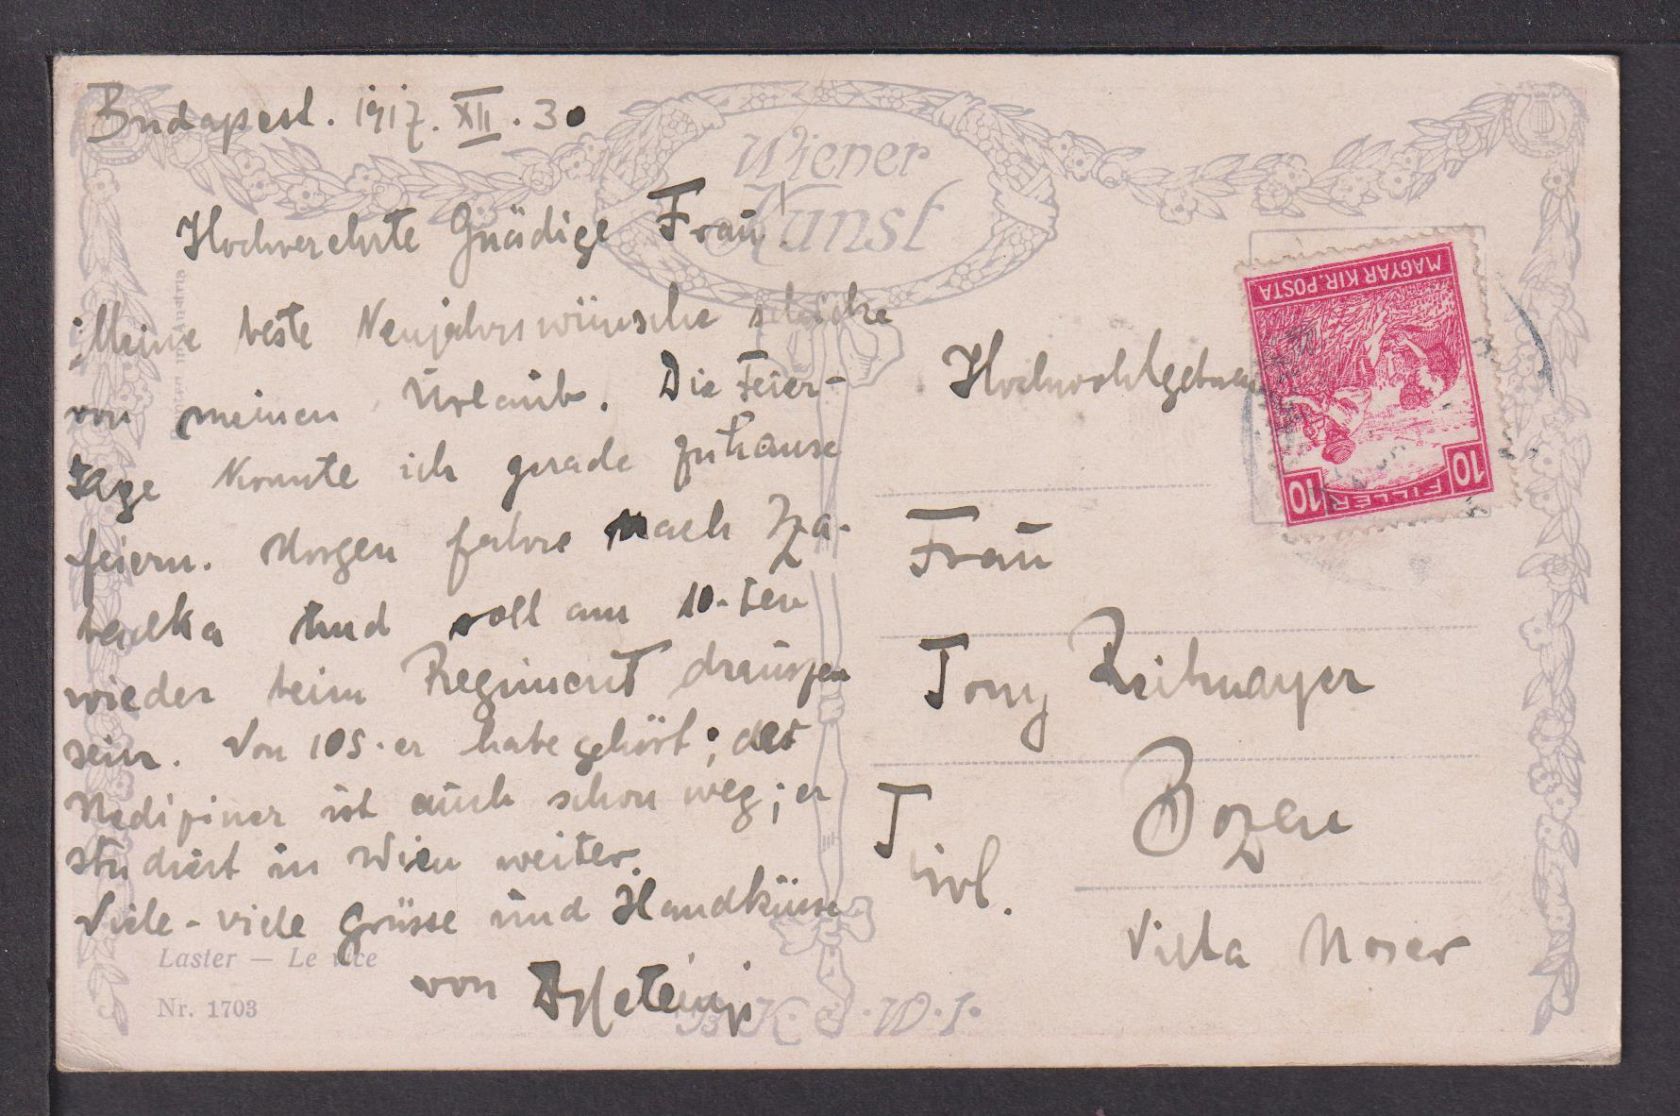 Budapest. 1917. XII. 30
Wiener
Kunst
Hochverehrte Gnädige Frau
Meine beste Neujahrswünsche schicke
von meinen Urlaub. Die Feier-
tage konnte ich gerade zuhause
feiern. Morgen fahre nach Sza-
badka und soll am 10-ten
wieder beim Regiment draussen
sein. Von 105-er habe gehört; der
Mediziner ist auch schon weg; er
studiert in Wien weiter.
Viele-viele Grüsse und Handküsse
von
Laster — Le vice
Nr. 1703
B.K.W.I.
MAGYAR KIR. POSTA
10 FILLÉR 10
Hochwohlgeboren
Frau
Tony Reitmayer
Bozen
Tirol.
Villa Moser